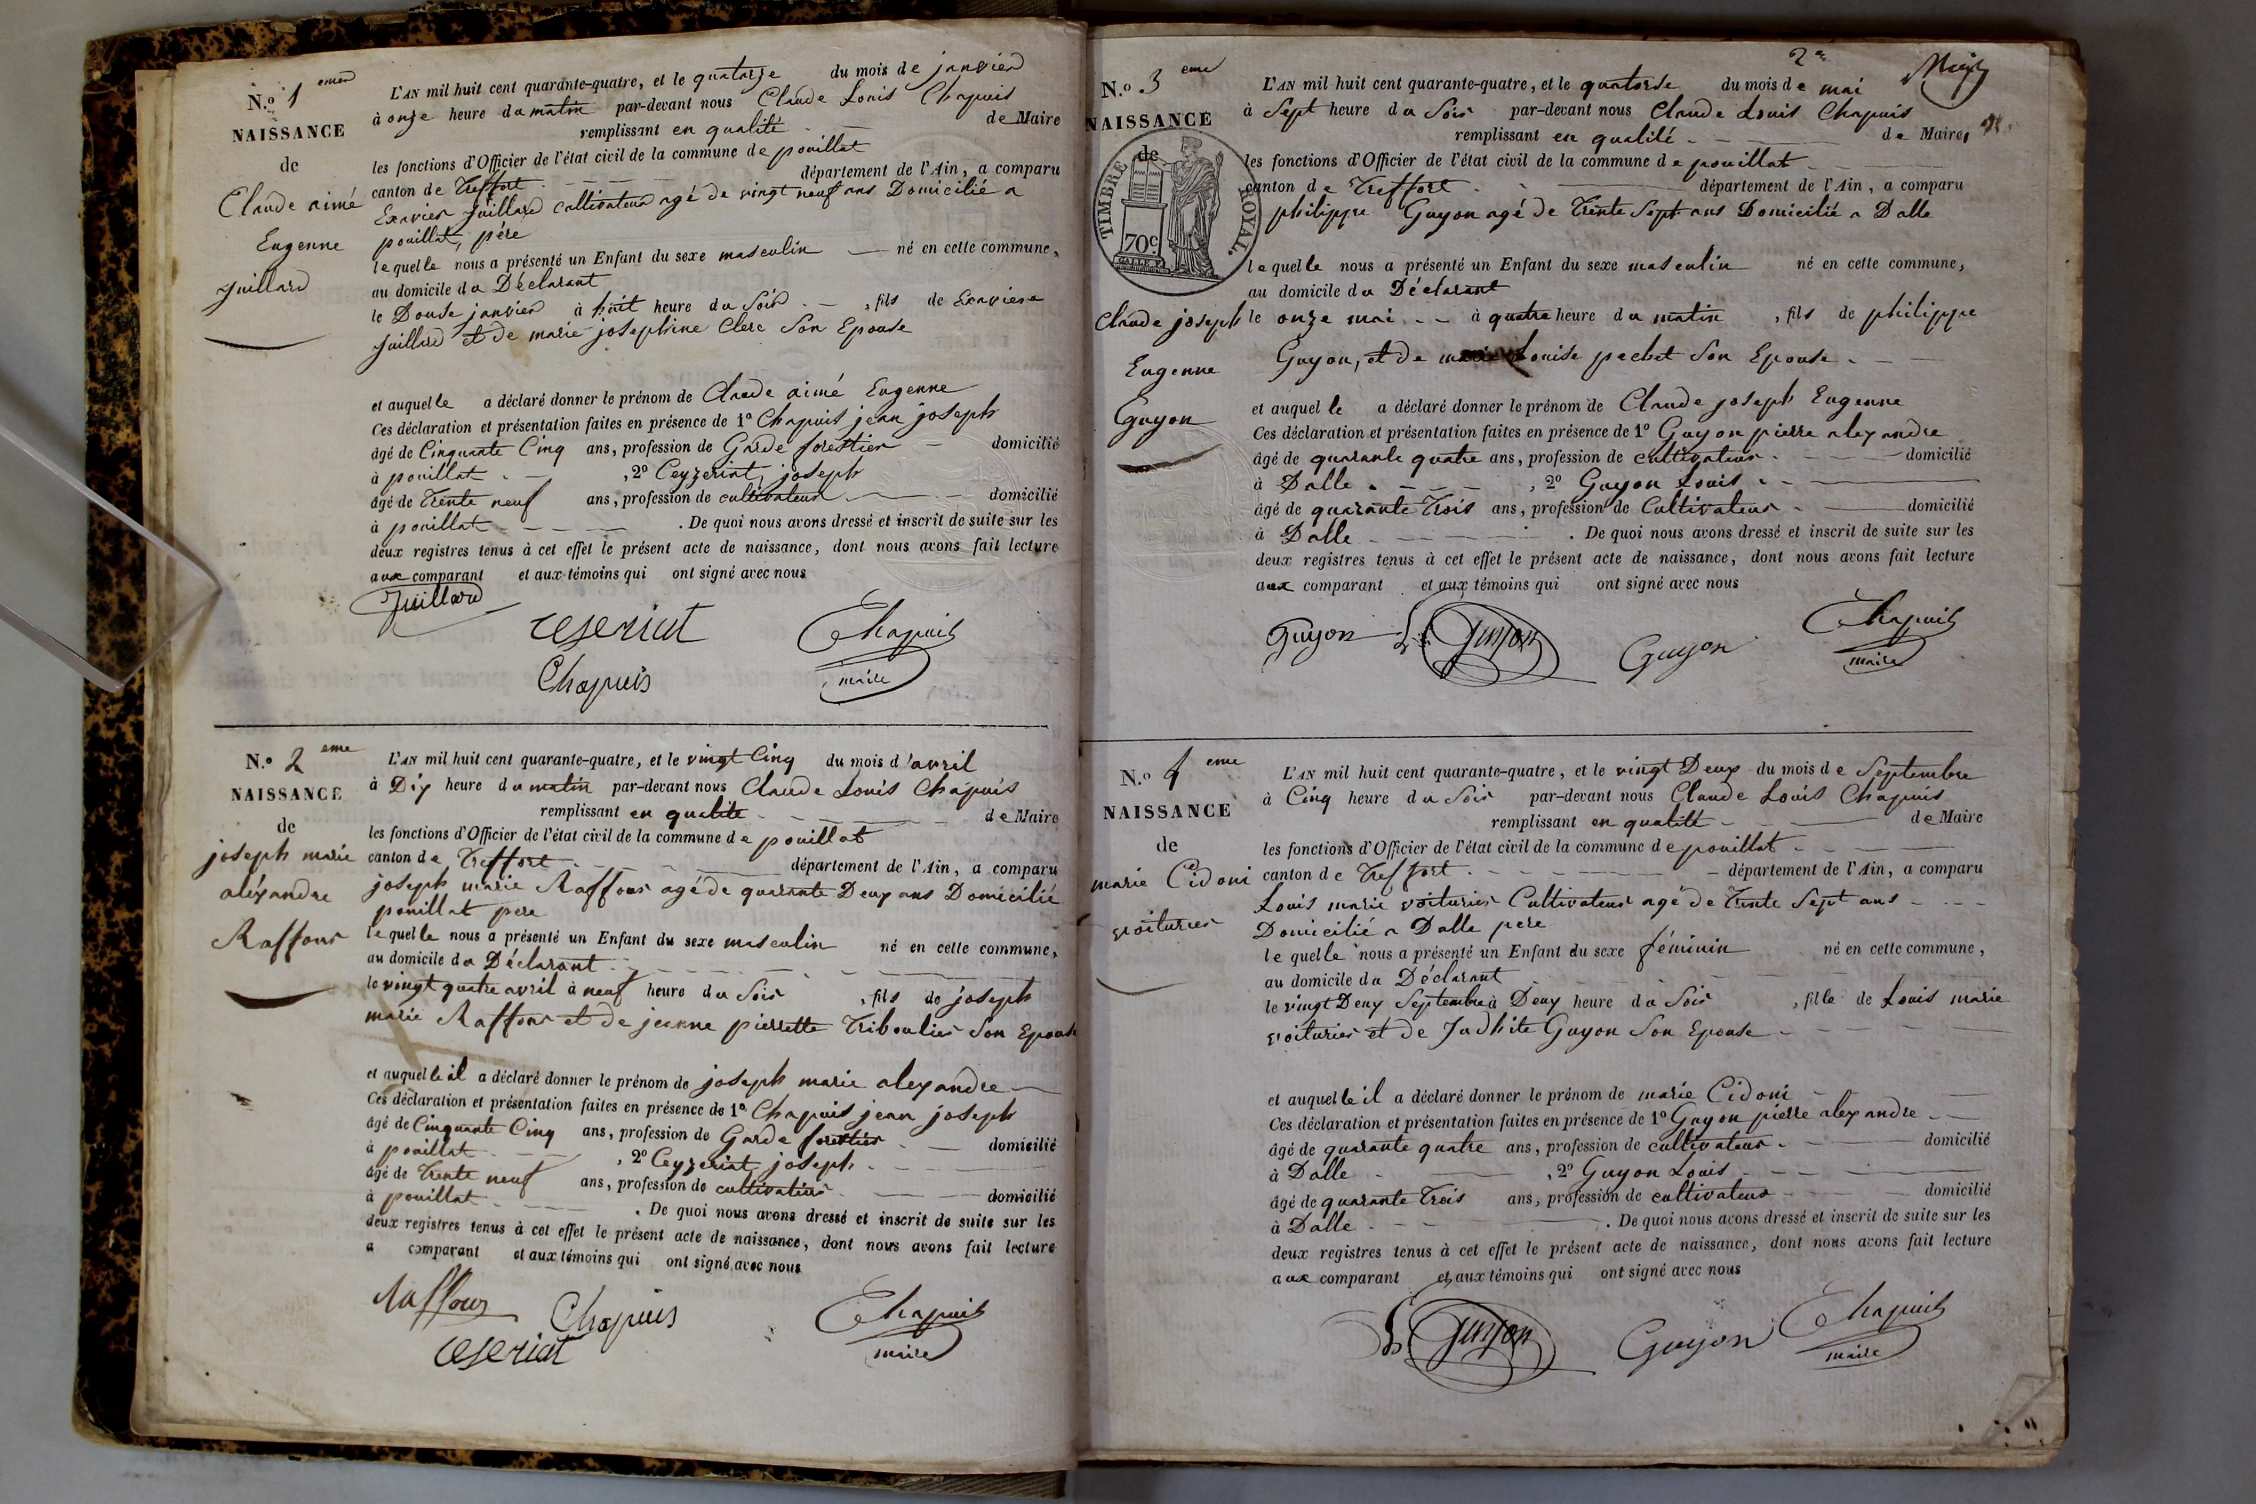 N.o 1 emer
NAISSANCE
de
Claude aimé
Eugenne
Juillard
L'AN mil huit cent quarante-quatre, et le quatorze du mois de janvier
à onze heure du matin par-devant nous Claude Louis Chapuis
remplissant en qualité de Maire
les fonctions d'Officier de l'état civil de la commune de pouillat
canton de Treffort département de l'Ain, a comparu
Exavier Juillard cultivateur agé de vingt neuf ans Domicilié a
pouillat, père
lequel le nous a présenté un Enfant du sexe masculin né en cette commune,
au domicile du Déclarant
le Douse janvier à huit heure du Soir, fils de Exavier
Juillard et de marie josephine Clerc Son Epouse
et auquel le a déclaré donner le prénom de Claude aimé Eugenne
Ces déclaration et présentation faites en présence de 1o Chapuis jean joseph
âgé de Cinquante Cinq ans, profession de Garde forestier domicilié
à pouillat, 2o Ceyzeriat joseph
âgé de Trente neuf ans, profession de cultivateur domicilié
à pouillat. De quoi nous avons dressé et inscrit de suite sur les
deux registres tenus à cet effet le présent acte de naissance, dont nous avons fait lecture
aux comparant et aux témoins qui ont signé avec nous
Juillard
ceseriat Chapuis
Chapuis maire
N.o 2 eme
NAISSANCE
de
joseph marie
aléxandre
Raffour
L'AN mil huit cent quarante-quatre, et le vingt Cinq du mois d'avril
à Dix heure du matin par-devant nous Claude Louis Chapuis
remplissant en qualité de Maire
les fonctions d'Officier de l'état civil de la commune de pouillat
canton de Treffort département de l'Ain, a comparu
joseph marie Raffour agé de quarante Deux ans Domicilié
pouillat pere
lequel le nous a présenté un Enfant du sexe masculin né en cette commune,
au domicile du Déclarant
le vingt quatre avril à neuf heure du Soir, fils de joseph
marie Raffour et de jeanne pierrette Triboulier Son Epouse
et auquel le il a déclaré donner le prénom de joseph marie alexandre
Ces déclaration et présentation faites en présence de 1o Chapuis jean joseph
âgé de Cinquante Cinq ans, profession de Garde forestier domicilié
à pouillat, 2o Ceyzeriat joseph
âgé de Trente neuf ans, profession de cultivateur domicilié
à pouillat. De quoi nous avons dressé et inscrit de suite sur les
deux registres tenus à cet effet le présent acte de naissance, dont nous avons fait lecture
a comparant et aux témoins qui ont signé avec nous
Raffour Chapuis Chapuis
ceseriat maire
2e
N.o 3 eme
NAISSANCE
de
TIMBRE ROYAL
70c
Claude joseph
Eugenne
Guyon
L'AN mil huit cent quarante-quatre, et le quatorse du mois de mai
à Sept heure du Soir par-devant nous Claude Louis Chapuis
remplissant en qualité de Maire
les fonctions d'Officier de l'état civil de la commune de pouillat
canton de Treffort département de l'Ain, a comparu
philippe Guyon agé de Trente Sept ans Domicilié a Dalle
lequel le nous a présenté un Enfant du sexe masculin né en cette commune,
au domicile du Déclarant
le onze mai à quatre heure du matin, fils de philippe
Guyon, et de marie Louise pechet Son Epouse
et auquel le a déclaré donner le prénom de Claude joseph Eugenne
Ces déclaration et présentation faites en présence de 1o Guyon pierre alexandre
âgé de quarante quatre ans, profession de cultivateur domicilié
à Dalle, 2o Guyon Louis
âgé de quarante Trois ans, profession de Cultivateur domicilié
à Dalle. De quoi nous avons dressé et inscrit de suite sur les
deux registres tenus à cet effet le présent acte de naissance, dont nous avons fait lecture
aux comparant et aux témoins qui ont signé avec nous
Guyon Guyon Guyon Chapuis
maire
N.o 4 eme
NAISSANCE
de
marie Cidoni
voiturier
L'AN mil huit cent quarante-quatre, et le vingt Deux du mois de Septembre
à Cinq heure du Soir par-devant nous Claude Louis Chapuis
remplissant en qualité de Maire
les fonctions d'Officier de l'état civil de la commune de pouillat
canton de Treffort département de l'Ain, a comparu
Louis marie voiturier Cultivateur agé de Trente Sept ans
Domicilié a Dalle pere
lequel le nous a présenté un Enfant du sexe féminin né en cette commune,
au domicile du Déclarant
le vingt Deux Septembre à Deux heure du Soir, fille de Louis marie
voiturier et de Judhite Guyon Son Epouse
et auquel le il a déclaré donner le prénom de marie Cidoni
Ces déclaration et présentation faites en présence de 1o Guyon pierre alexandre
âgé de quarante quatre ans, profession de cultivateur domicilié
à Dalle, 2o Guyon Louis
âgé de quarante Trois ans, profession de cultivateur domicilié
à Dalle. De quoi nous avons dressé et inscrit de suite sur les
deux registres tenus à cet effet le présent acte de naissance, dont nous avons fait lecture
aux comparant et aux témoins qui ont signé avec nous
Guyon Guyon Chapuis
maire